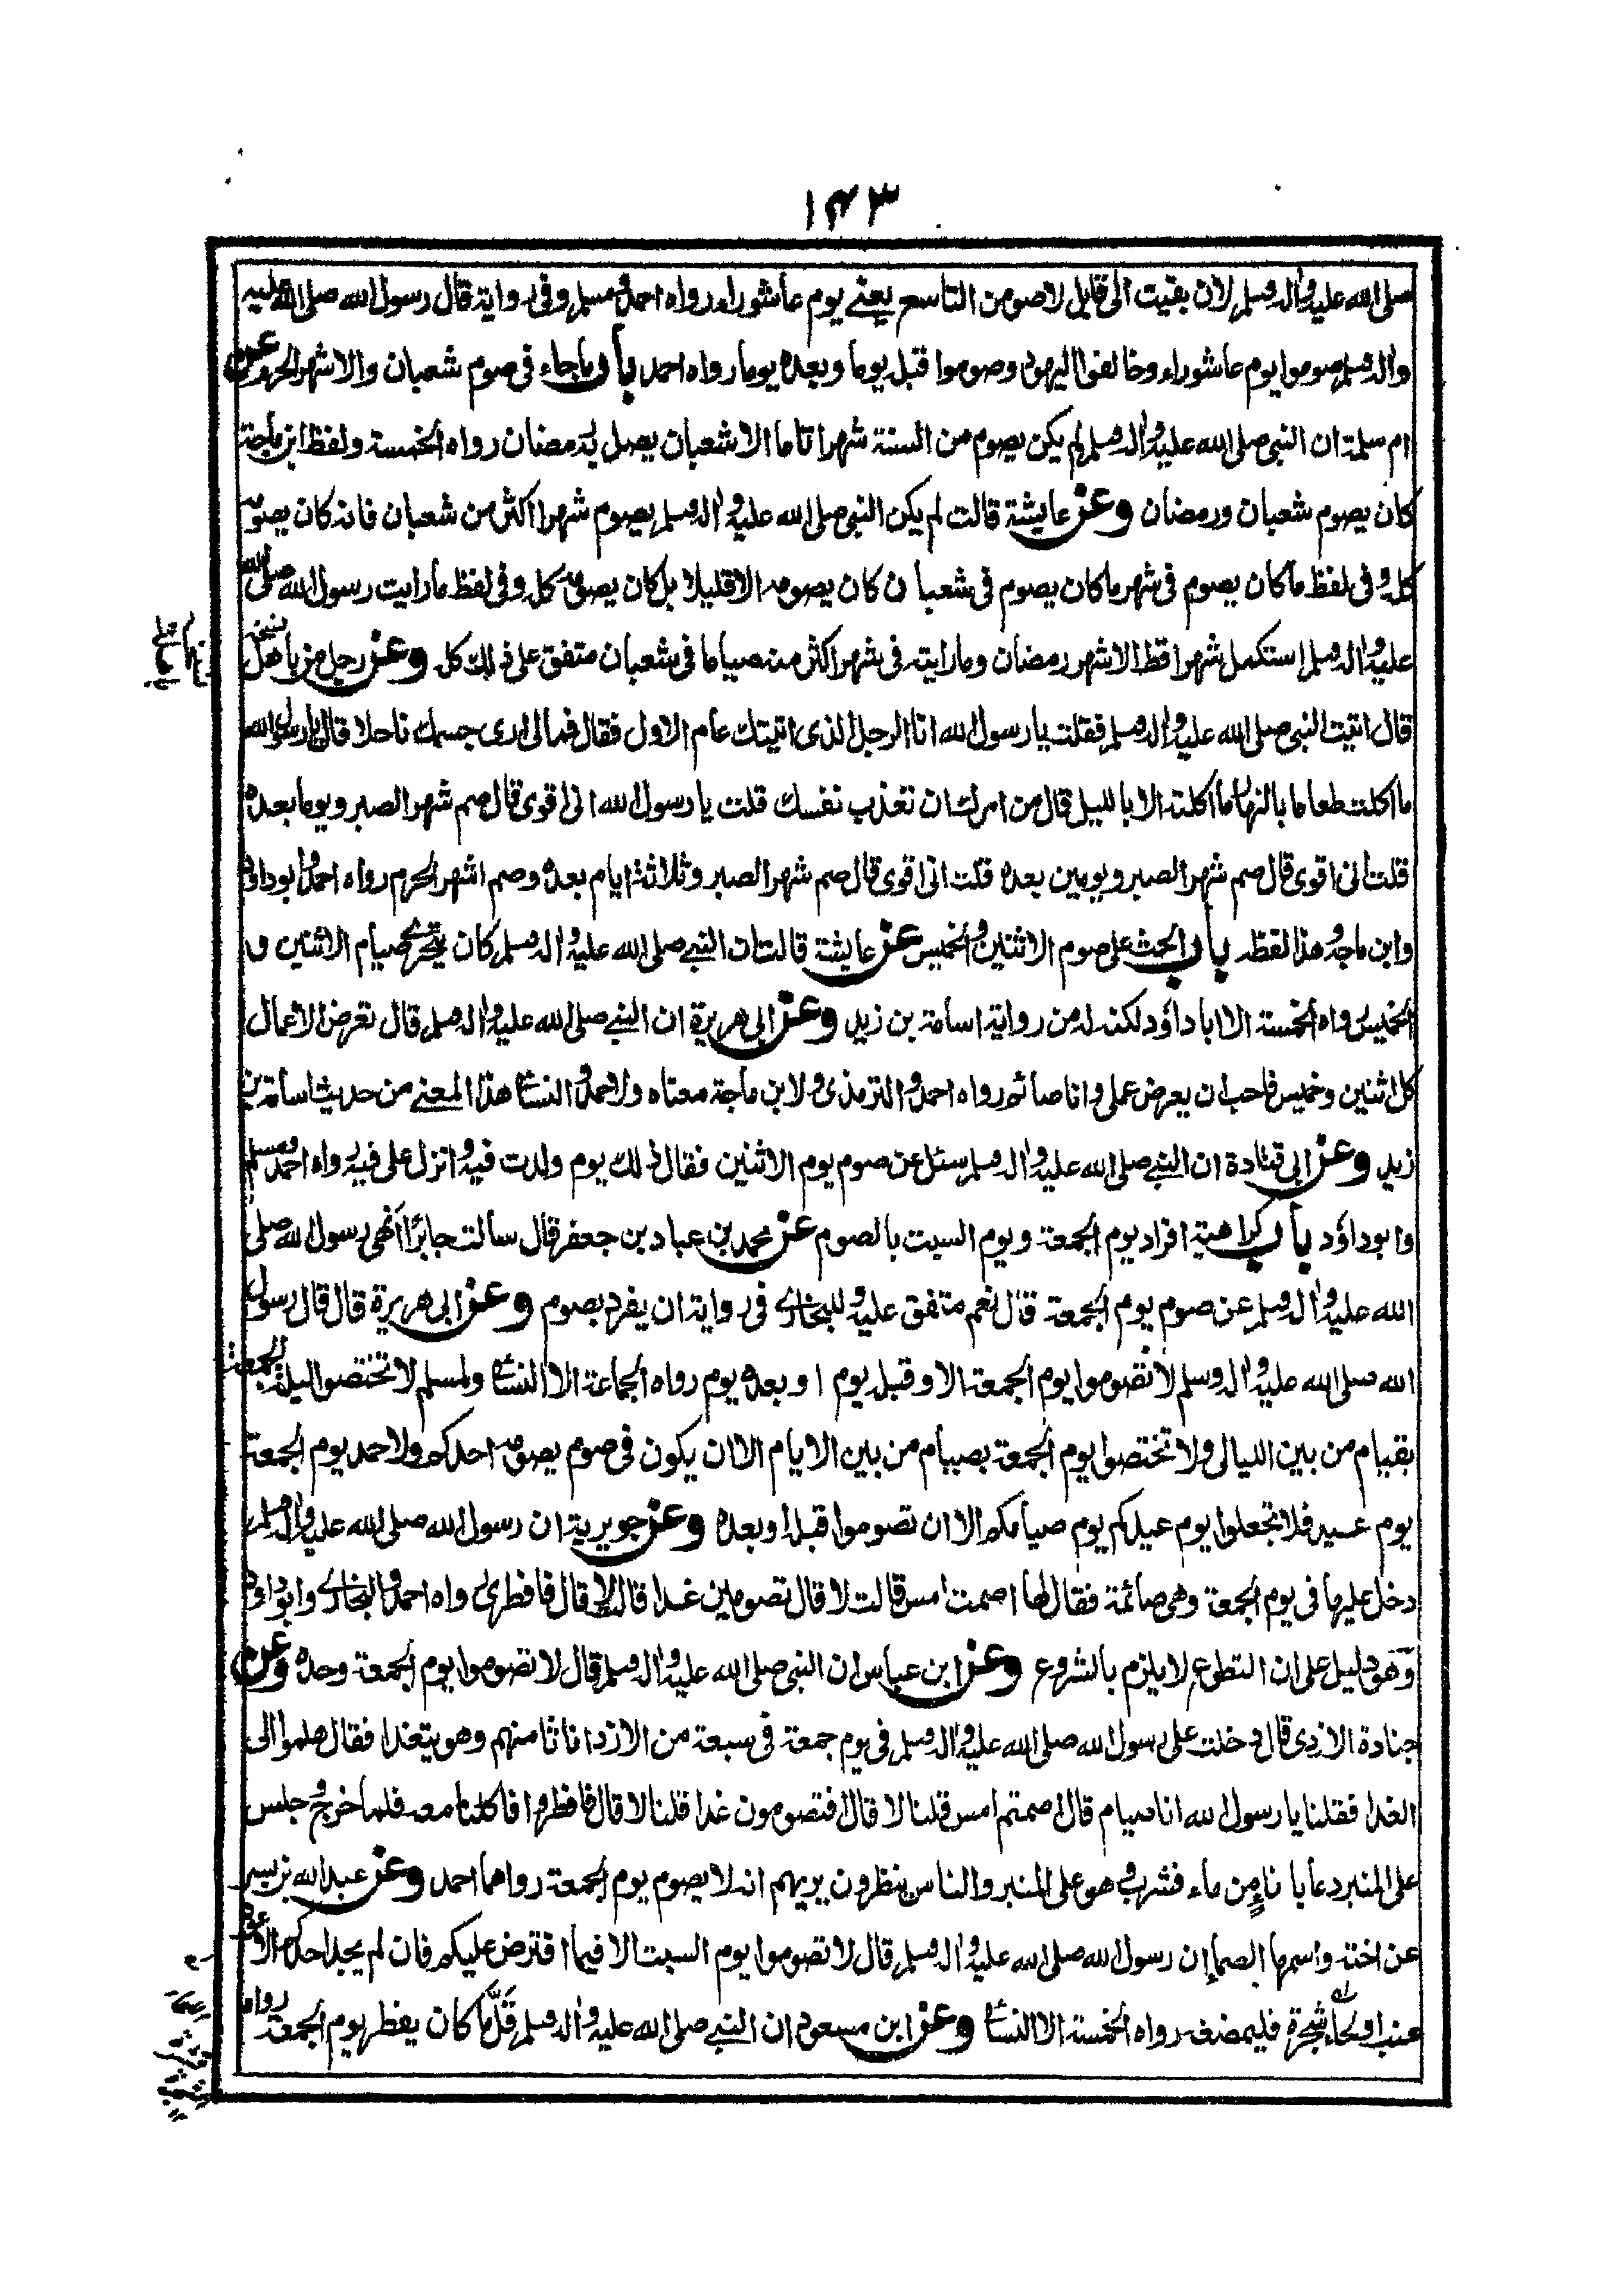 ١٤٣
صلى الله عليه واله وسلم لان بقيت الى قابل لاصومن التاسع يعنے يوم عاشوراء رواه احمد ومسلم وفى رواية قال رسول الله صلى الله عليه
واله وسلم صوموا يوم عاشوراء وخالفوا اليهود وصوموا قبله يوما وبعده يوما رواه احمد باب ماجاء فى صوم شعبان والاشهر الحرم عن
ام سلمة ان النبى صلى الله عليه واله وسلم لم يكن يصوم من السنة شهرا تاما الا شعبان يصل به رمضان رواه الخمسة ولفظ ابن ماجة
كان يصوم شعبان ورمضان وعن عايشة قالت لم يكن النبى صلى الله عليه واله وسلم يصوم شهرا اكثر من شعبان فانه كان يصومه
كله وفى لفظ ما كان يصوم فى شهر ما كان يصوم فى شعبان كان يصومه الا قليلا بل كان يصومه كله وفى لفظ ما رايت رسول الله صلى الله
عليه واله وسلم استكمل شهرا قط الا شهر رمضان وما رايته فى شهر اكثر منه صياما فى شعبان متفق على ذلك كله وعن رجل من باهلة
قال اتيت النبى صلى الله عليه واله وسلم فقلت يا رسول الله انا الرجل الذى اتيتك عام الاول فقال فمالى ارى جسمك ناحلا قال يا رسول الله
ما اكلت طعاما بالنهار ما اكلته الا بالليل قال من امرك ان تعذب نفسك قلت يا رسول الله انى اقوى قال صم شهر الصبر ويوما بعده
قلت انى اقوى قال صم شهر الصبر ويومين بعده قلت انى اقوى قال صم شهر الصبر وثلاثة ايام بعده وصم اشهر الحرم رواه احمد وابو داود
وابن ماجه وهذا لفظه باب الحث على صوم الاثنين والخميس عن عايشة قالت ان النبے صلى الله عليه واله وسلم كان يتحرى صيام الاثنين و
الخميس رواه الخمسة الا ابا داؤد لكنه له من رواية اسامة بن زيد وعن ابى هريرة ان النبے صلى الله عليه واله وسلم قال تعرض الاعمال
كل اثنين وخميس فاحب ان يعرض عملى وانا صائم رواه احمد والترمذى ولابن ماجة معناه ولاحمد والنسائے هذا المعنے من حديث اسامة بن
زيد وعن ابى قتادة ان النبے صلى الله عليه واله وسلم سئل عن صوم يوم الاثنين فقال ذلك يوم ولدت فيه وانزل على فيه رواه احمد ومسلم
وابو داؤد باب كراهية افراد يوم الجمعة ويوم السبت بالصوم عن محمد بن عباد بن جعفر قال سالت جابرا أنهى رسول الله صلى
الله عليه واله وسلم عن صوم يوم الجمعة قال نعم متفق عليه وللبخارے فى رواية ان يفرد بصوم وعن ابى هريرة قال قال رسول
الله صلى الله عليه واله وسلم لا تصوموا يوم الجمعة الا وقبله يوم او بعده يوم رواه الجماعة الا النسائے ولمسلم لا تختصوا ليلة الجمعة
بقيام من بين الليالى ولا تختصوا يوم الجمعة بصيام من بين الايام الا ان يكون فى صوم يصومه احدكم ولاحمد يوم الجمعة
يوم عيد فلا تجعلوا يوم عيدكم يوم صيامكم الا ان تصوموا قبله او بعده وعن جويرية ان رسول الله صلى الله عليه واله وسلم
دخل عليها فى يوم الجمعة وهى صائمة فقال لها اصمت امس قالت لا قال تصومين غدا قالت لا قال فافطرى رواه احمد والبخارے وابو داود
وهو دليل على ان التطوع لا يلزم بالشروع وعن ابن عباس ان النبى صلى الله عليه واله وسلم قال لا تصوموا يوم الجمعة وحده وعن
جنادة الازدى قال دخلت على رسول الله صلى الله عليه واله وسلم فى يوم جمعة فى سبعة من الازد انا ثامنهم وهو يتغدا فقال هلموا الى
الغدا فقلنا يا رسول الله انا صيام قال اصمتم امس قلنا لا قال افتصومون غدا قلنا لا قال فافطروا فاكلنا معه فلما خرج وجلس
على المنبر دعا باناء من ماء فشرب وهو على المنبر والناس ينظرون يريهم انه لا يصوم يوم الجمعة رواهما احمد وعن عبد الله بن بسر
عن اخته واسمها الصماء ان رسول الله صلى الله عليه واله وسلم قال لا تصوموا يوم السبت الا فيما افترض عليكم فان لم يجد احدكم الا عود
عنب او لحاء شجرة فليمضغه رواه الخمسة الا النسائے وعن ابن مسعود ان النبے صلى الله عليه واله وسلم قَلَّمَا كان يفطر يوم الجمعة رواه